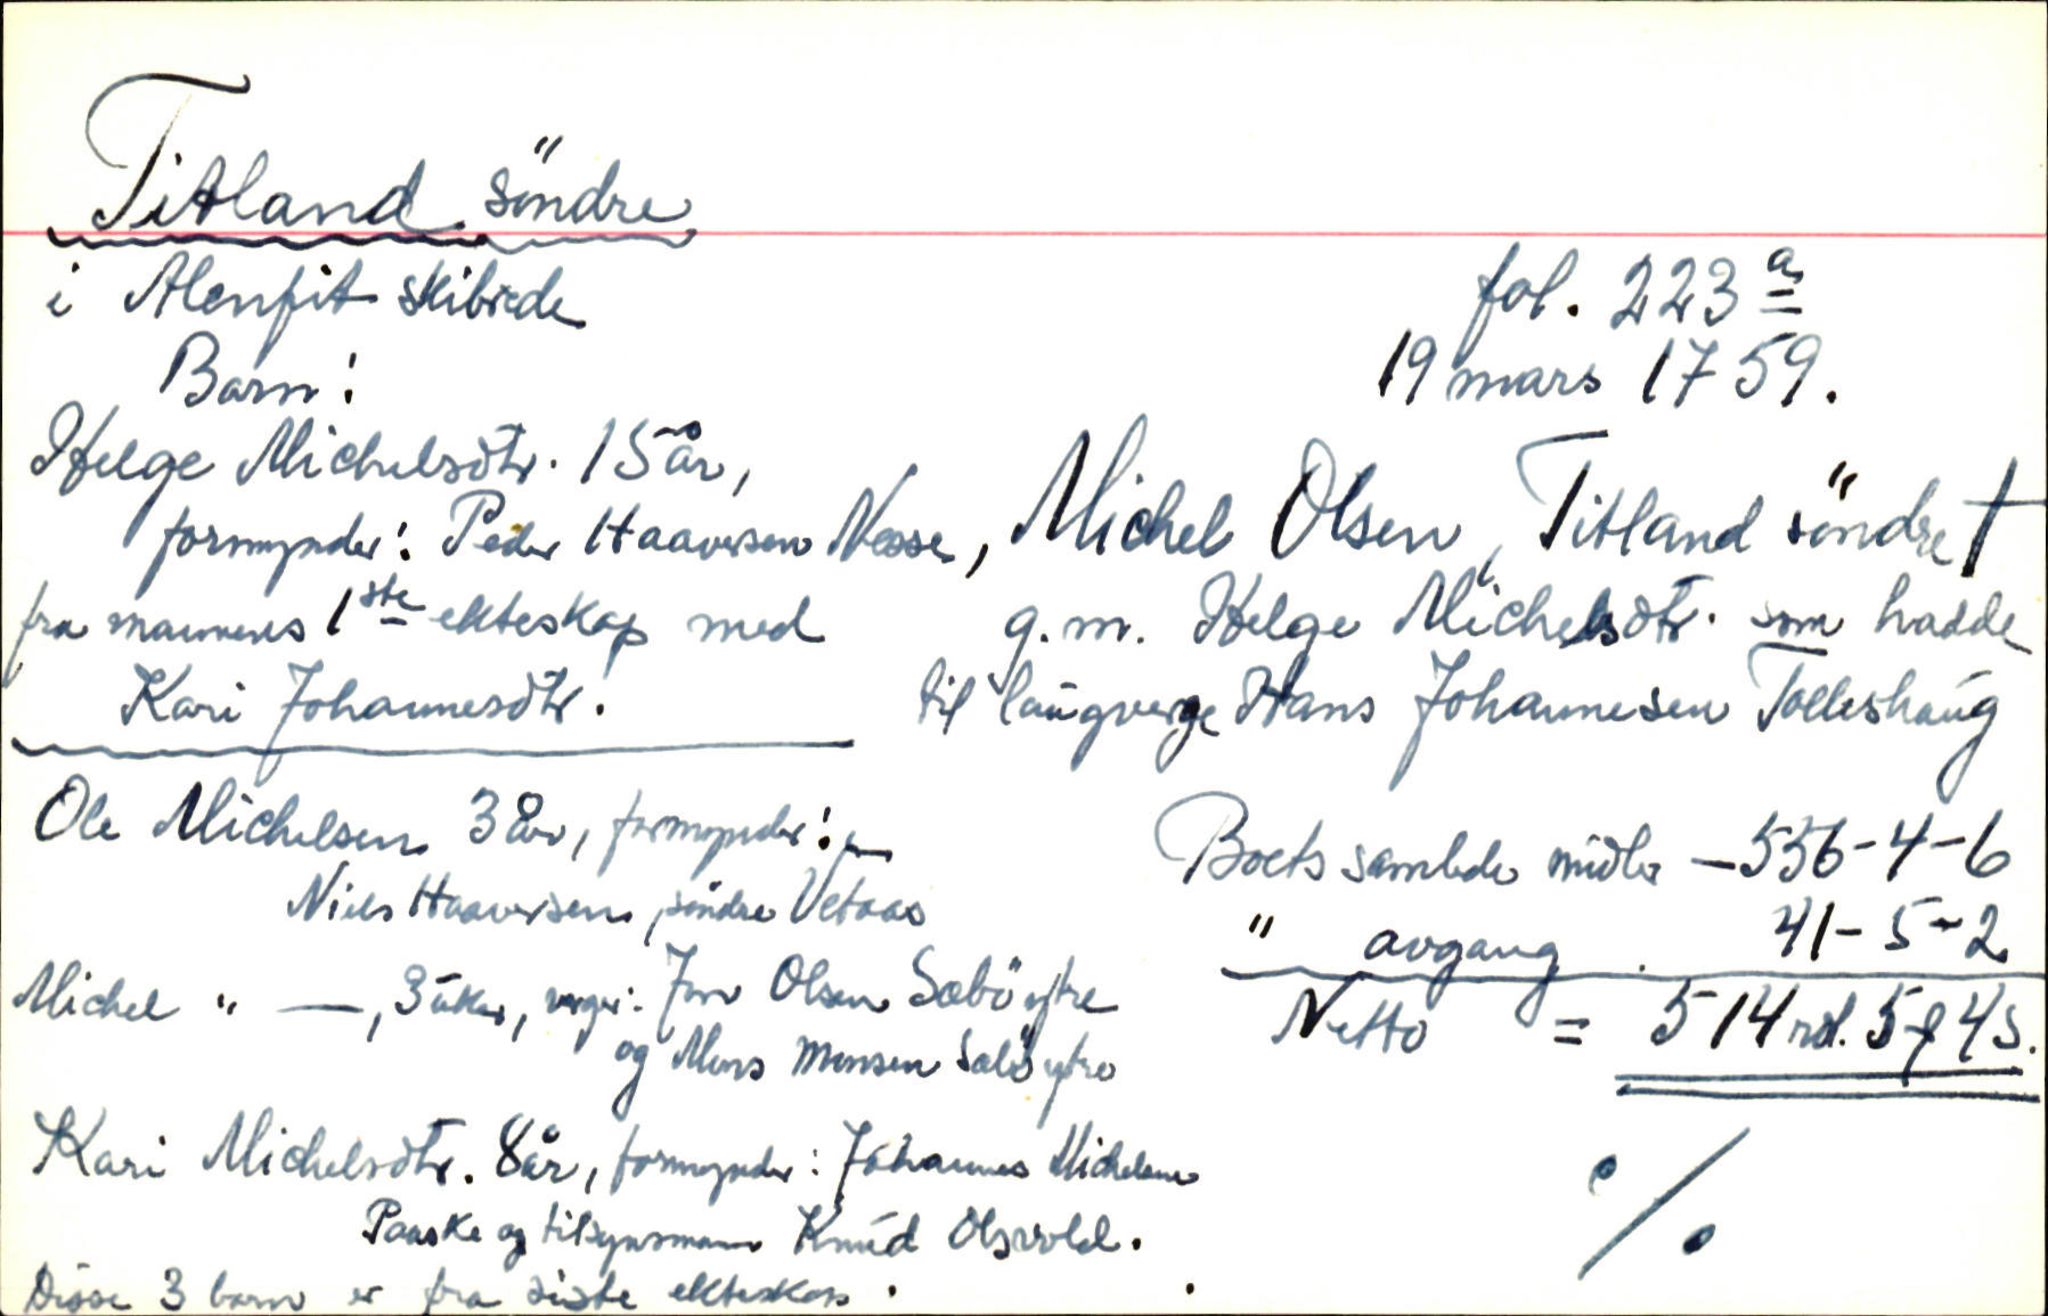 Titland söndre
i Alenfit skibrede
fol. 223 a
19 mars 1759.
Barn:
Helge Michelsdtr. 15 år,
formynder: Peder Haaversen Nesse,
fra mannens 1ste ekteskap med
Kari Johannesdtr.
Michel Olsen, Titland söndre †
g.m. Helge Michelsdtr. som hadde
til laugverge Hans Johannesen Tolleshaug
Ole Michelsen 3 år, formynder:
Niels Haaversen, söndre Vetaas
Michel " —, 3 uker, verger: Jon Olsen Sæbö ytre
og Mons Monsen Sæbö ytre
Kari Michelsdtr. 8 år, formynder: Johannes Michelsen
Paaske og tilsynsmann Knud Olsvold.
Disse 3 barn er fra siste ekteskap.
Boets samlede midler — 556-4-6
" avgang . 41-5-2
Netto = 514 rd. 5 f 4 s.
%